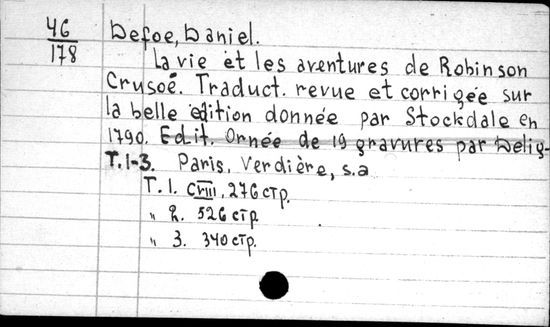 46
178
Defoe, Daniel.
La vie et les aventures de Robinson
Crusoé. Traduct. revue et corrigée sur
la belle edition donnée par Stockdale en
1790. Edit. Ornée de 19 gravures par Delig-
T.1-3. Paris, Verdière, s.a
T. 1. CVIII, 276 стр.
" 2. 526 стр.
" 3. 340 стр.